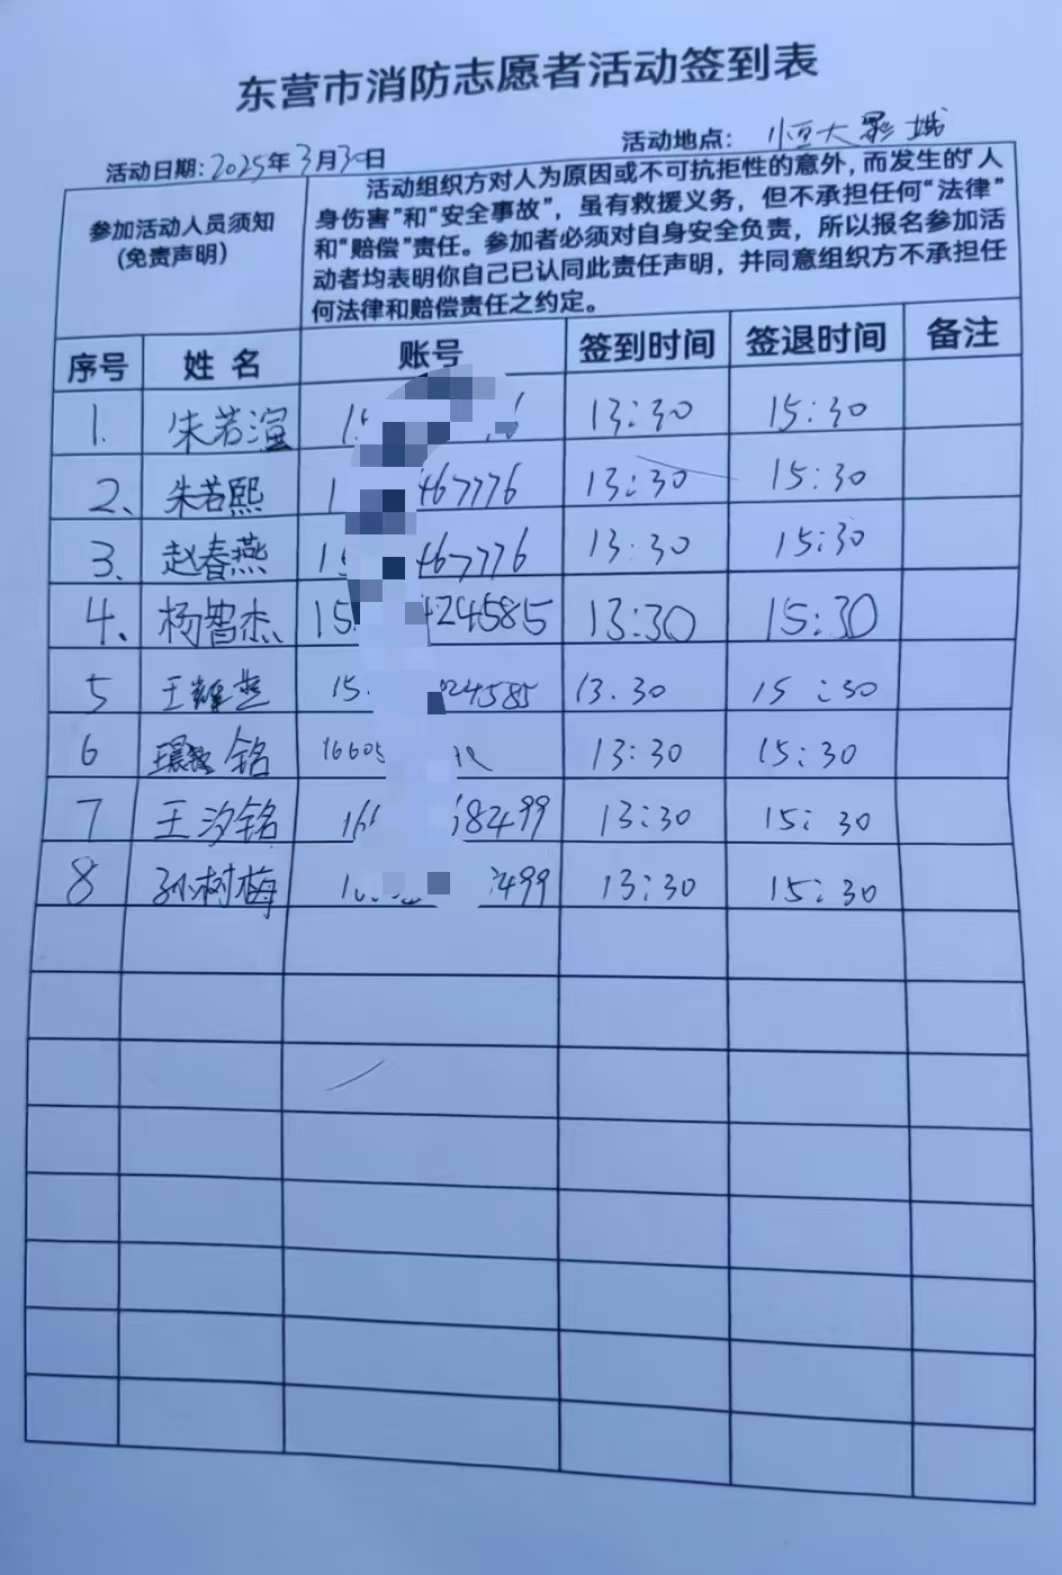 东营市消防志愿者活动签到表
活动日期:2025年3月30日 活动地点: 恒大影城
参加活动人员须知
(免责声明)
活动组织方对人为原因或不可抗拒性的意外,而发生的“人
身伤害”和“安全事故”,虽有救援义务,但不承担任何“法律”
和“赔偿”责任。参加者必须对自身安全负责,所以报名参加活
动者均表明你自己已认同此责任声明,并同意组织方不承担任
何法律和赔偿责任之约定。
序号 姓名 账号 签到时间 签退时间 备注
1. 朱若渲 13:30 15:30
2、 朱若熙 1 467776 13:30 15:30
3、 赵春燕 15 467776 13:30 15:30
4、 杨智杰 15 424585 13:30 15:30
5 王 15 24585 13.30 15:30
6 铭 16605 13:30 15:30
7 王汐铭 16 8499 13:30 15:30
8 孙树梅 499 13:30 15:30